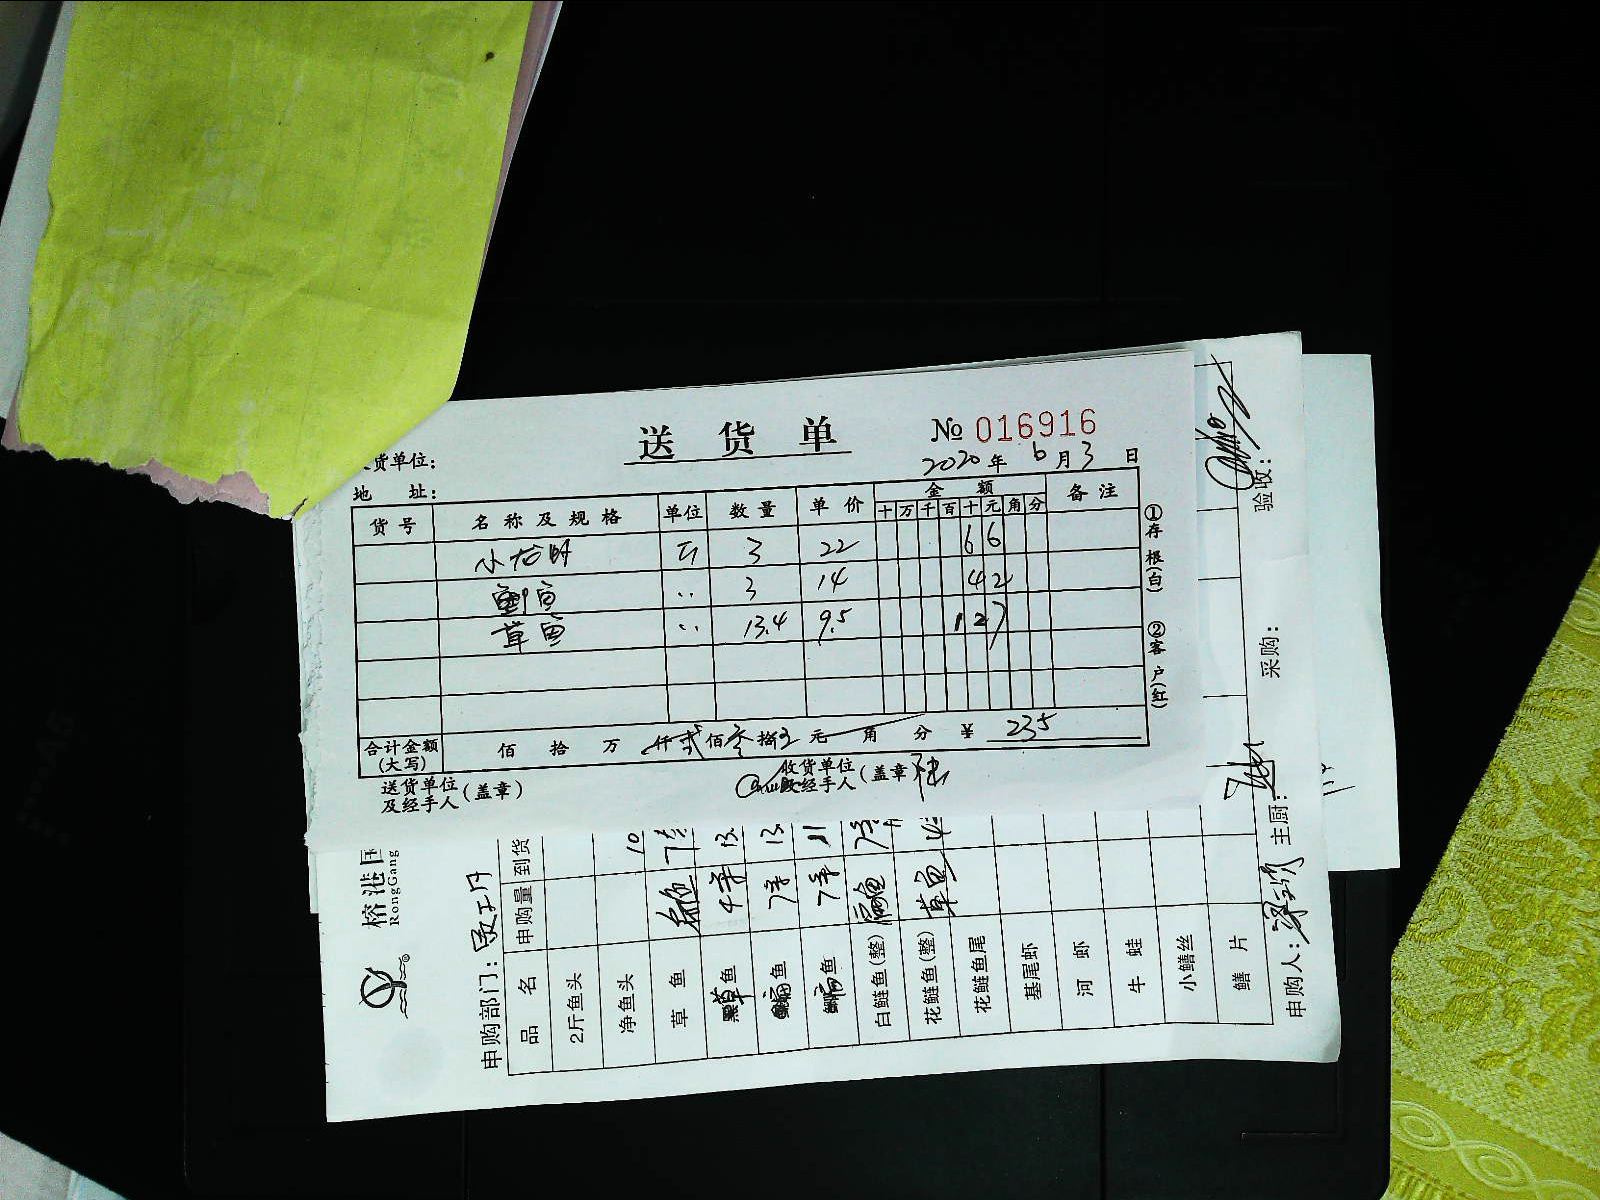 送货单
№ 016916
货单位:
2020年6月3日
地 址:
货号 名称及规格 单位 数量 单价 金额 备注
十 万 千 百 十 元 角 分
小 斤 3 22 66
鱼 .. 3 14 42
草鱼 .. 13.4 9.5 127
合计金额(大写) 佰 拾 万 仟贰佰叁拾 元 角 分 ¥ 235
送货单位及经手人(盖章)
收货单位及经手人(盖章
①存根(白)
②客户(红)
榕港国
RongGang
申购部门:
品名 申购量 到货
2斤鱼头
净鱼头 10
草鱼
草鱼 13.
鱼 13.
鱼 11
白鲢鱼(整)
花鲢鱼(整) 草鱼
花鲢鱼尾
基尾虾
河虾
牛蛙
小鳝丝
鳝片
申购人:
主厨:
采购:
验收: